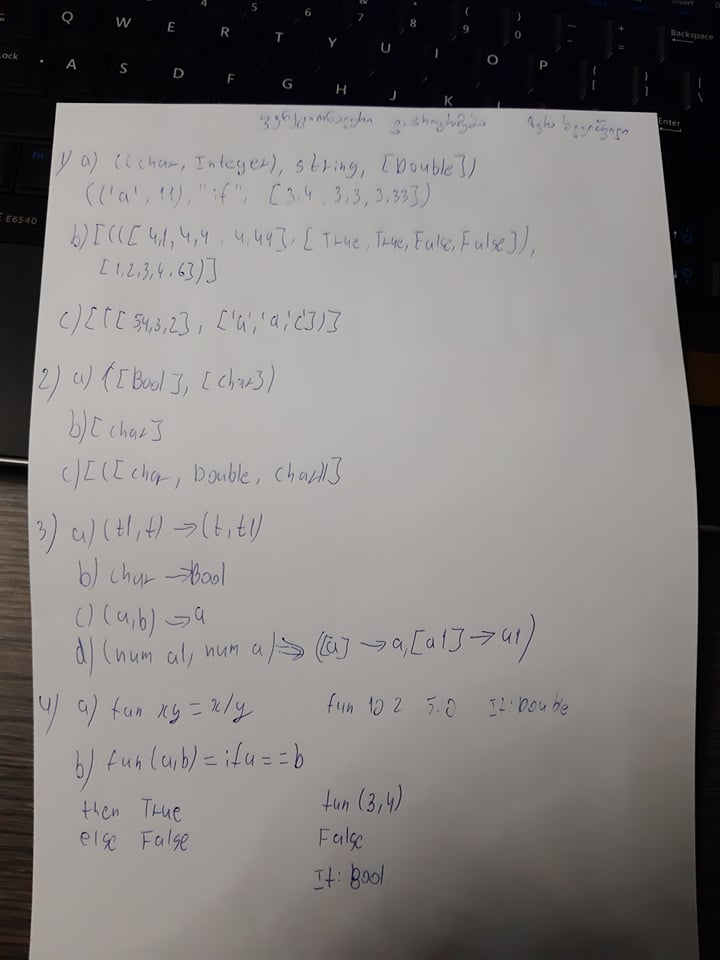 Q W E R T Y U I O P
A S D F G H J K L
Backspace
Enter
Insert
Fn
E6540
1) a) ((char, Integer), string, [Double])
(('a', 11), "if", [3.4, 3,3, 3,33])
b) [(([4,1, 4,4, 4,44], [True, True, False, False]),
[1,2,3,4,63)]
c) [([5,4,3,2], ['a','a,'c'])]
2) a) ([Bool], [char])
b) [char]
c) [([char, Double, char])]
3) a) (t1, t) → (t, t1)
b) char → Bool
c) (a,b) → a
d) (num a1, num a) => ([a] → a, [a1] → a1)
4) a) fun xy = x/y fun 10 2 5.0 It: Double
b) fun (a,b) = if a == b
then True fun (3,4)
else False False
It: Bool